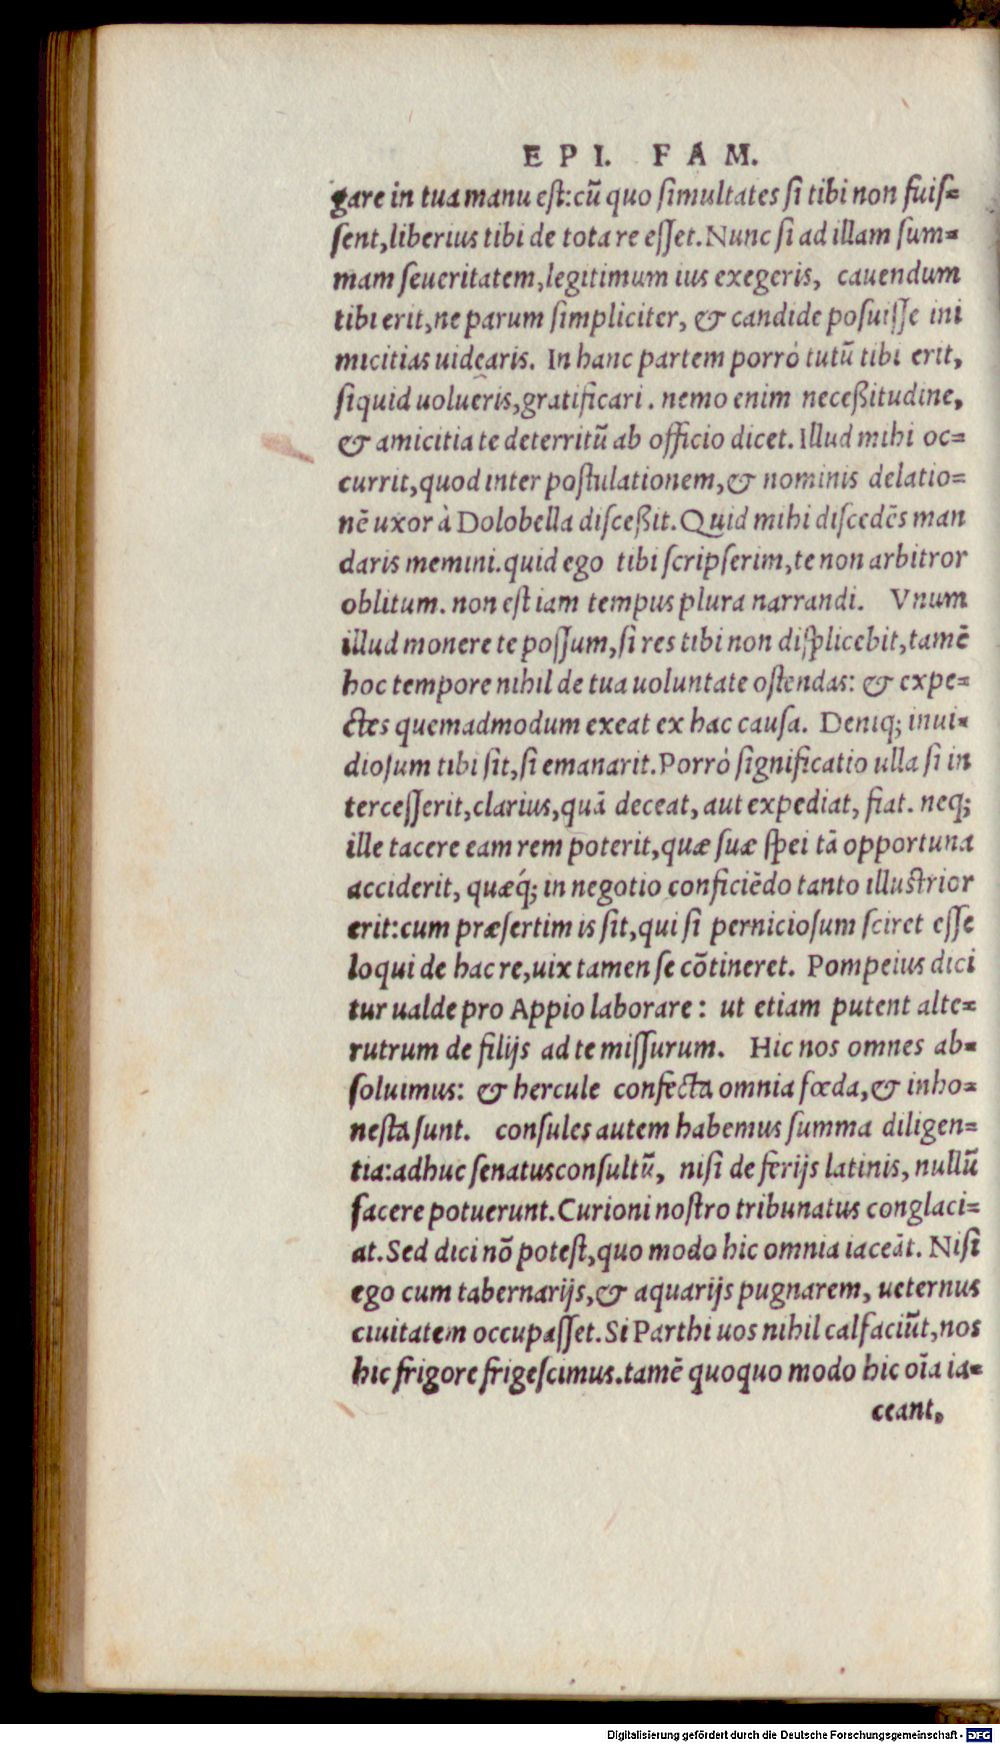 EPI. FAM.
gare in tua manu est:cũ quo simultates si tibi non fuis=
sent,liberius tibi de tota re esset.Nunc si ad illam sum=
mam seueritatem,legitimum ius exegeris, cauendum
tibi erit,ne parum simpliciter, & candide posuisse ini
micitias uidearis. In hanc partem porrò tutũ tibi erit,
siquid uolueris,gratificari. nemo enim neceßitudine,
& amicitia te deterritũ ab officio dicet. Illud mihi oc=
currit,quod inter postulationem,& nominis delatio=
nẽ uxor à Dolobella disceßit. Quid mihi discedẽs man
daris memini.quid ego tibi scripserim,te non arbitror
oblitum. non est iam tempus plura narrandi. Vnum
illud monere te possum,si res tibi non displicebit,tamẽ
hoc tempore nihil de tua uoluntate ostendas: & expe=
ctes quemadmodum exeat ex hac causa. Deniq; inui=
diosum tibi sit,si emanarit.Porrò significatio ulla si in
tercesserit,clarius,quã deceat, aut expediat, fiat. neq;
ille tacere eam rem poterit,quæ suæ spei tã opportuna
acciderit, quæq́; in negotio conficiẽdo tanto illustrior
erit:cum præsertim is sit,qui si perniciosum sciret esse
loqui de hac re,uix tamen se cõtineret. Pompeius dici
tur ualde pro Appio laborare: ut etiam putent alte=
rutrum de filijs ad te missurum. Hic nos omnes ab=
soluimus: & hercule confecta omnia fœda,& inho=
nesta sunt. consules autem habemus summa diligen=
tia:adhuc senatusconsultũ, nisi de ferijs latinis, nullũ
facere potuerunt.Curioni nostro tribunatus conglaci=
at.Sed dici nõ potest,quo modo hic omnia iaceãt. Nisi
ego cum tabernarijs,& aquarijs pugnarem, ueternus
ciuitatem occupasset.Si Parthi uos nihil calfaciũt,nos
hic frigore frigescimus.tamẽ quoquo modo hic oĩa ia=
ceant,
Digitalisierung gefördert durch die Deutsche Forschungsgemeinschaft - DFG